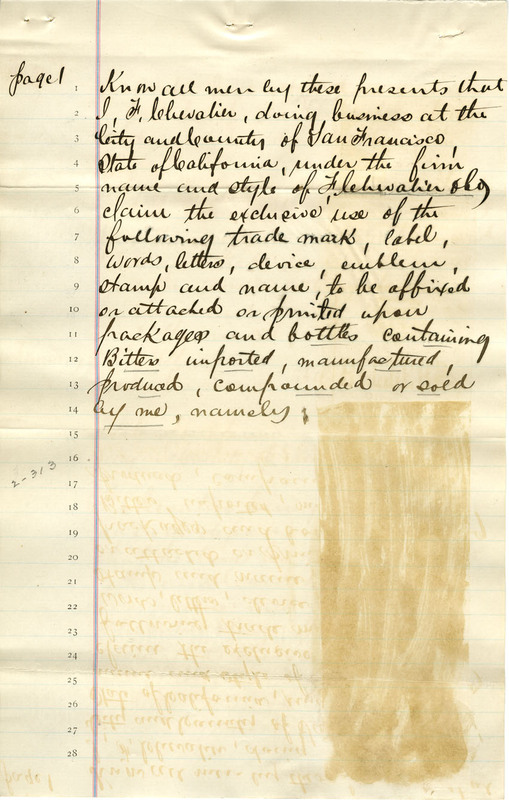 page 1
1 Know all men by these presents that
2 I, F. Chevalier, doing business at the
3 City and County of San Francisco,
4 State of California, under the firm
5 name and style of F. Chevalier & Co,
6 claim the exclusive use of the
7 following trade mark, label,
8 words, letters, device, emblem,
9 stamp and name, to be affixed
10 or attached or printed upon
11 packages and bottles containing
12 Bitters imported, manufactured,
13 produced, compounded or sold
14 by me, namely;
15
16
2-313
17
18
19
20
21
22
23
24
25
26
27
28